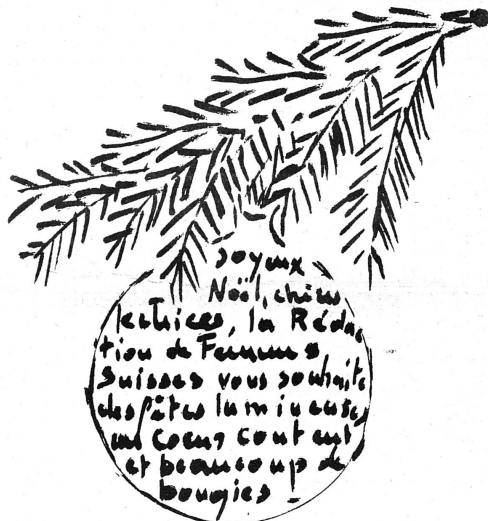 Joyeux
Noël, chères
lectrices, la Rédac
tion de Femmes
Suisses vous souhaite
des fêtes lumineuses,
un coeur content
et beaucoup de
bougies !